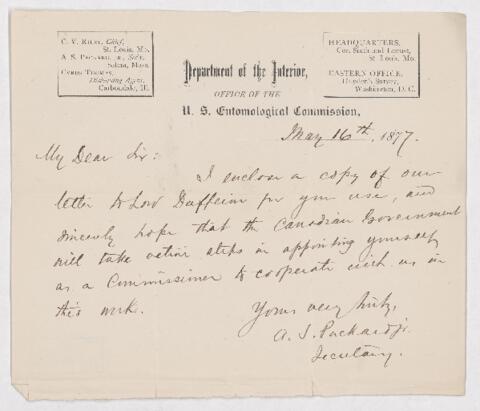 C. V. Riley, Chief,
St. Louis, Mo.
A. S. Packard, Jr., Sec'y,
Salem, Mass.
Cyrus Thomas,
Disbursing Agent,
Carbondale, Ill.
HEADQUARTERS,
Cor. Sixth and Locust,
St. Louis, Mo.
EASTERN OFFICE,
Hayden's Survey,
Washington, D. C.
Department of the Interior,
OFFICE OF THE
U. S. Entomological Commission,
May 16th, 1877.
My Dear Sir:
I enclose a copy of our
letter to Lord Dufferin for your use, and
sincerely hope that the Canadian Government
will take active steps in appointing yourself
as a Commissioner to cooperate with us in
this work.
Yours very truly,
A. S. Packard jr.
Secretary.